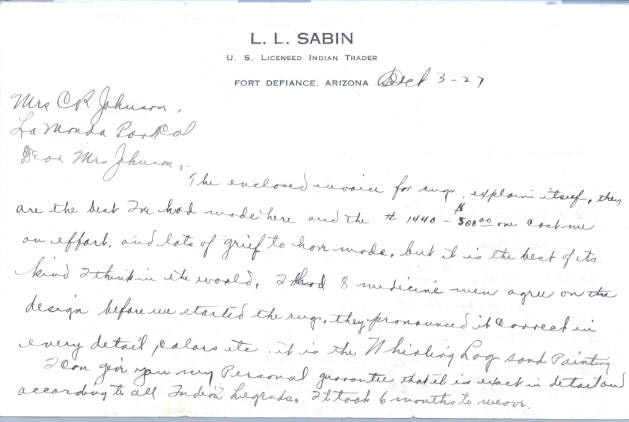 L. L. SABIN
U. S. LICENSED INDIAN TRADER
FORT DEFIANCE, ARIZONA Sept 3-27
Mrs C R Johnson,
La Monda Park Cal
Dear Mrs Johnson,.
The enclosed invoice for rugs, explain itself, they
are the best Ive had made here and the # 1440 - $500.00 one cost me
an effort, and lots of grief to have made, but it is the best of its
kind I think in the world, I had 8 medicine men agree on the
design before we started the rug, they pronounced it correct in
every detail, colors etc. it is the Whirling Log sand Painting
I can give you my Personal guarantee that it is exact in detail and
according to all Indian Legends. It took 6 months to weave.